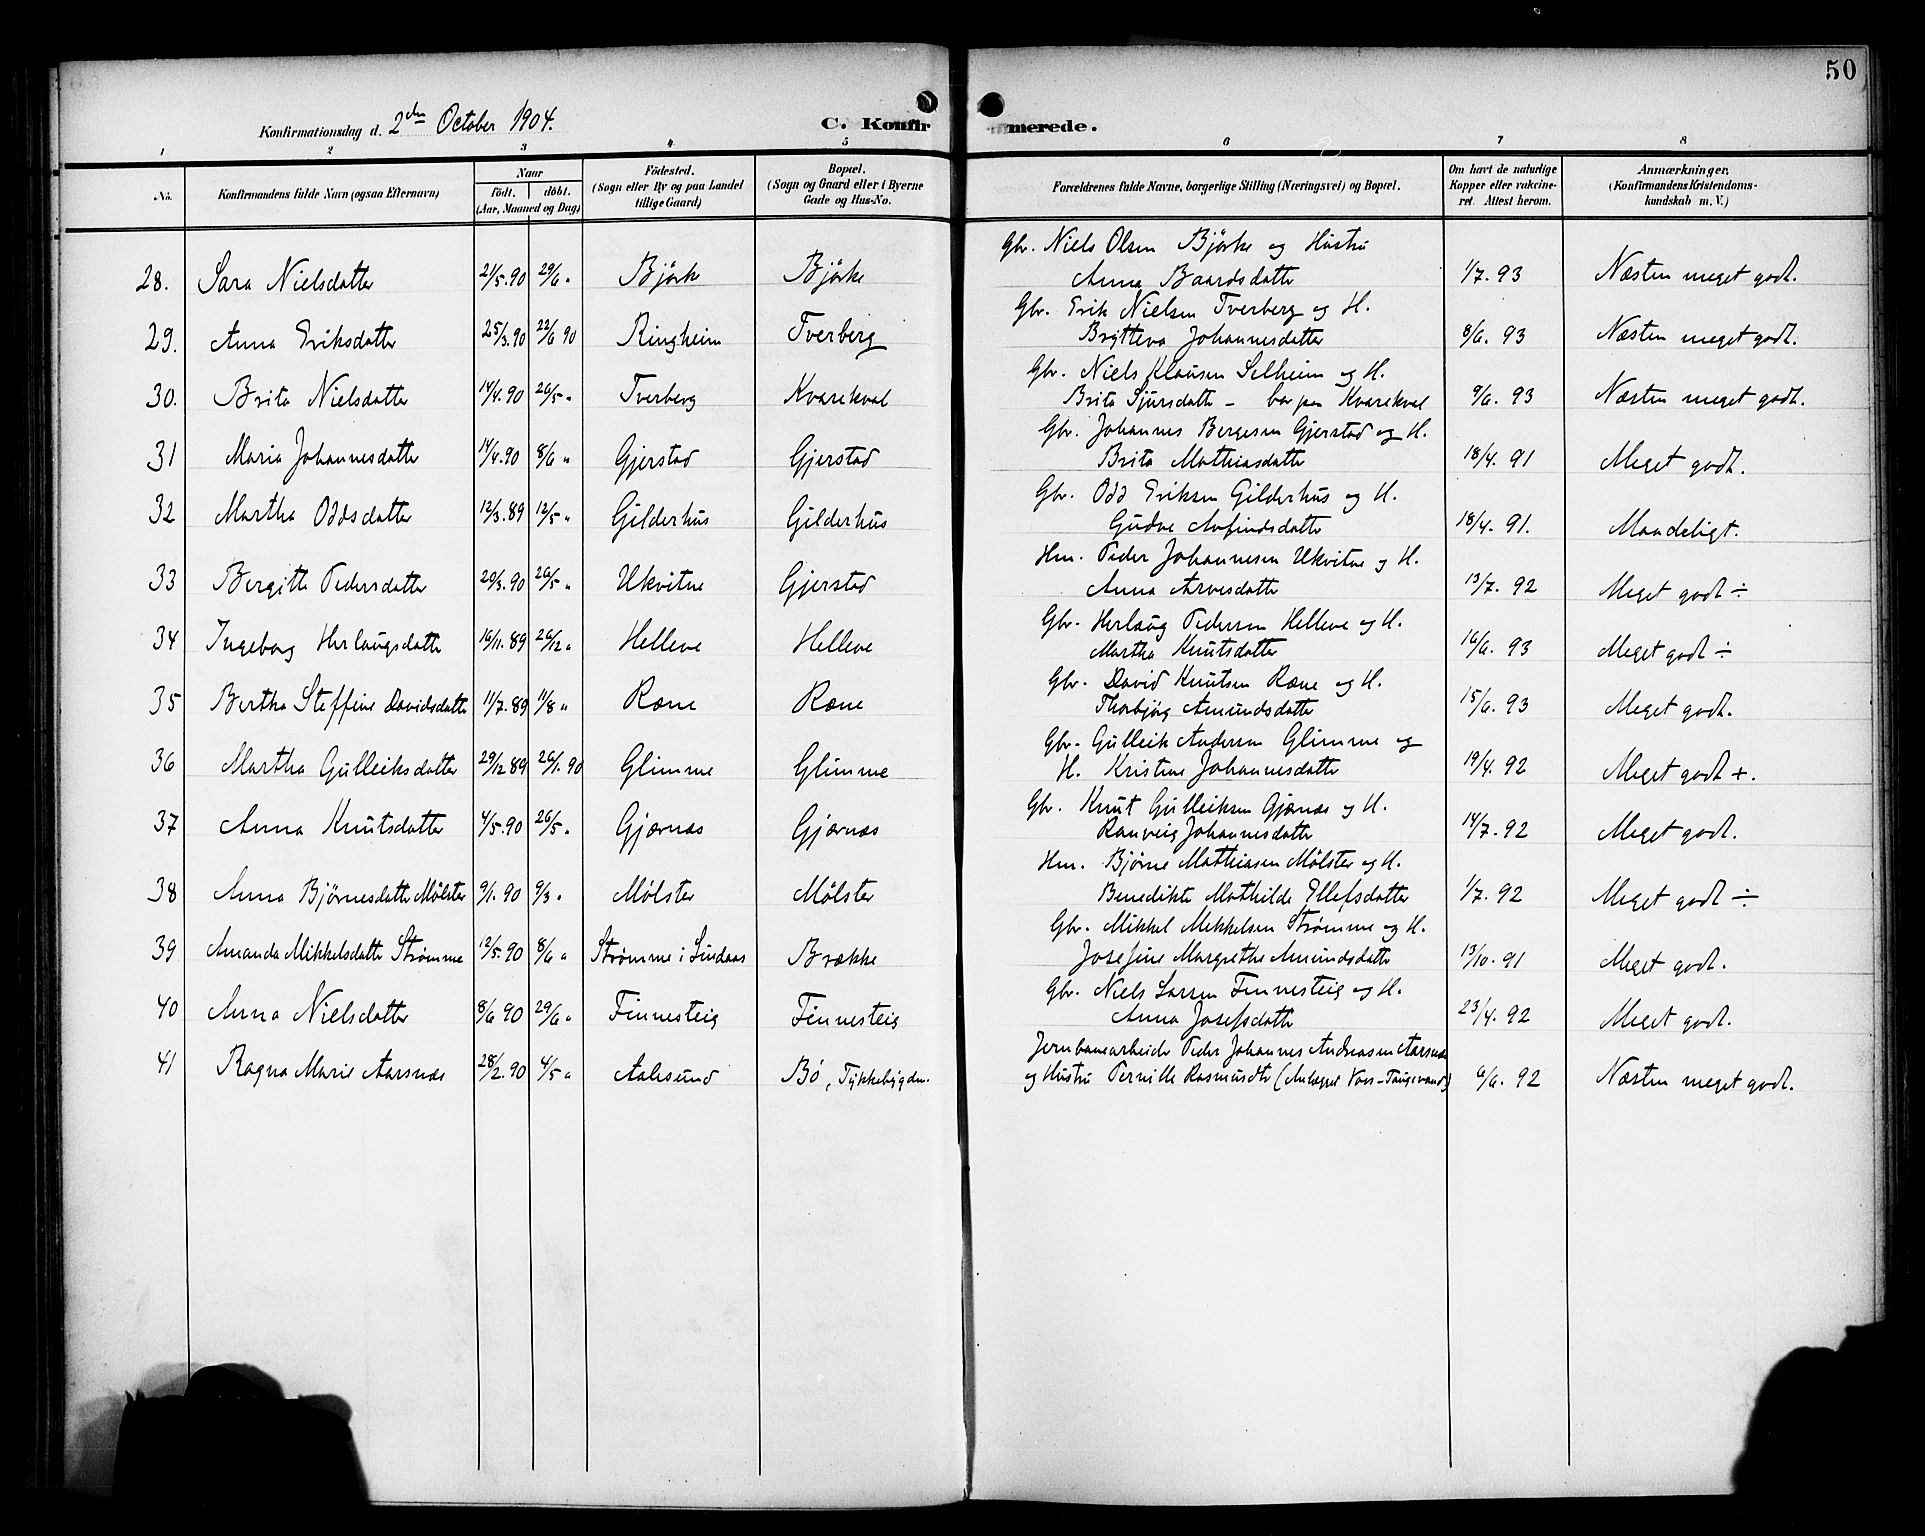 50
Konfirmationsdag d. 2den October 1904.
C. Konfirmerede.
1 2 3 4 5 6 7 8
No. Konfirmandens fulde Navn (ogsaa Efternavn) Naar født. døbt. (Aar, Maaned og Dag) Fødested. (Sogn eller By og paa Landet tillige Gaard) Bopæl. (Sogn og Gaard eller i Byerne Gade og Hus-No. Forældrenes fulde Navne, borgerlige Stilling (Næringsvei) og Bopæl. Om havt de naturlige Kopper eller vakcineret. Attest herom. Anmærkninger. (Konfirmandens Kristendomskundskab m. V.)
Gbr. Niels Olsen Björke og Hustru
28. Sara Nielsdatter 21/5.90 29/6 " Björke Björke Anna Baardsdatter 1/7. 93 Næsten meget godt.
Gbr. Erik Nielsen Tverberg og H.
29. Anna Eriksdatter 25/3.90 22/6 90 Ringheim Tverberg Brytteva Johannesdatter 8/6. 93 Næsten meget godt.
Gbr. Niels Klausen Selheim og H.
30. Brita Nielsdatter 14/4.90 26/5 " Tverberg Kvarekval Brita Sjursdatter – bor paa Kvarekval 9/6. 93 Næsten meget godt.
Gbr. Johannes Bergesen Gjerstad og H.
31 Maria Johannesdatter 14/4.90 8/6 " Gjerstad Gjerstad Brita Mathiasdatter 18/4. 91 Meget godt.
Gbr. Odd Eriksen Gilderhus og H.
32 Martha Oddsdatter 12/3.89 12/5 " Gilderhus Gilderhus Gudve Arfindsdatter 18/4. 91. Maadeligt.
Hm. Peder Johannesen Ukvitne og H.
33 Bergitte Pedersdatter 20/3.90 26/5 " Ukvitne Gjerstad Anna Arvesdatter 13/7. 92 Meget godt ÷
Gbr. Herlaug Pedersen Helleve og H.
34 Ingeborg Herlaugsdatter 16/11.89 26/12 " Helleve Helleve Martha Knutsdatter 16/6. 93 Meget godt ÷
Gbr. David Knutsen Ræne og H.
35 Bertha Steffine Davidsdatter 11/7.89 11/8 " Ræne Ræne Thorbjørg Amundsdatter 15/6. 93 Meget godt.
Gbr. Gulleik Andersen Glimme og
36 Martha Gulleiksdatter 29/12 89 26/1.90 Glimme Glimme H. Kristine Johannesdatter 19/4. 92 Meget godt +.
Gbr. Knut Gulleiksen Gjernæs og H.
37 Anna Knutsdatter 4/5.90 26/5 " Gjernæs Gjernæs Ranveig Johannesdatter 14/7. 92 Meget godt.
Hm. Bjørne Mathiasen Mølster og H.
38 Anna Bjørnesdatter Mølster 9/1.90 9/3 " Mølster Mølster Benedikte Mathilde Ellefsdatter 1/7. 92 Meget godt ÷
Gbr. Mikkel Mikkelsen Strømme og H.
39 Amanda Mikkelsdatter Strømme 12/5.90 8/6 " Strømme i Lindaas Brække Josefine Margrethe Amundsdatter 13/10. 91 Meget godt.
Gbr. Niels Larsen Finnesteig og H.
40 Anna Nielsdatter 8/6 90 29/6 " Finnesteig Finnesteig Anna Josefsdatter 23/4. 92 Meget godt.
Jernbanearbeider Peder Johannes Andreasen Aarsnæs
41 Ragna Marie Aarsnæs 28/2.90 4/5 " Aalesund Bø, Tykkebygdn. og Hustru Pernille Rasmusdtr (Anlægget Voss-Taugevand) 6/6. 92 Næsten meget godt.